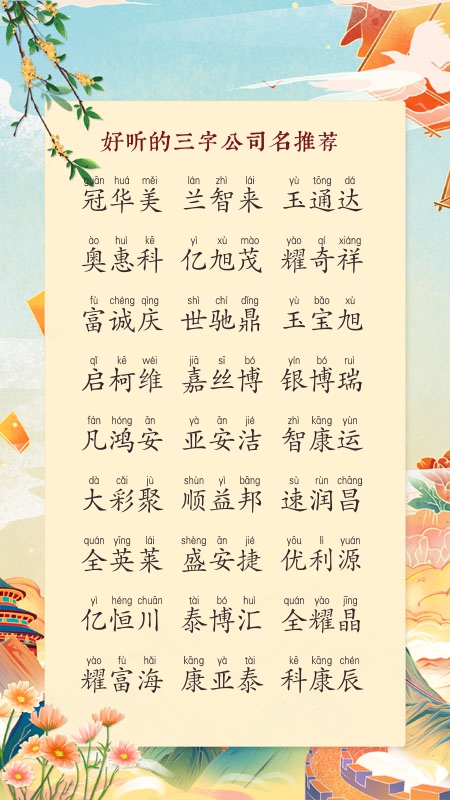 好听的三字公司名推荐
guān huá měi lán zhì lái yù tōng dá
冠华美 兰智来 玉通达
ào huì kē yì xù mào yào qí xiáng
奥惠科 亿旭茂 耀奇祥
fù chéng qìng shì chí dǐng yù bǎo xù
富诚庆 世驰鼎 玉宝旭
qǐ kē wéi jiā sī bó yín bó ruì
启柯维 嘉丝博 银博瑞
fán hóng ān yà ān jié zhì kāng yùn
凡鸿安 亚安洁 智康运
dà cǎi jù shùn yì bāng sù rùn chāng
大彩聚 顺益邦 速润昌
quán yīng lái shèng ān jié yōu lì yuán
全英莱 盛安捷 优利源
yì héng chuān tài bó huì quán yào jīng
亿恒川 泰博汇 全耀晶
yào fù hǎi kāng yà tài kē kāng chén
耀富海 康亚泰 科康辰